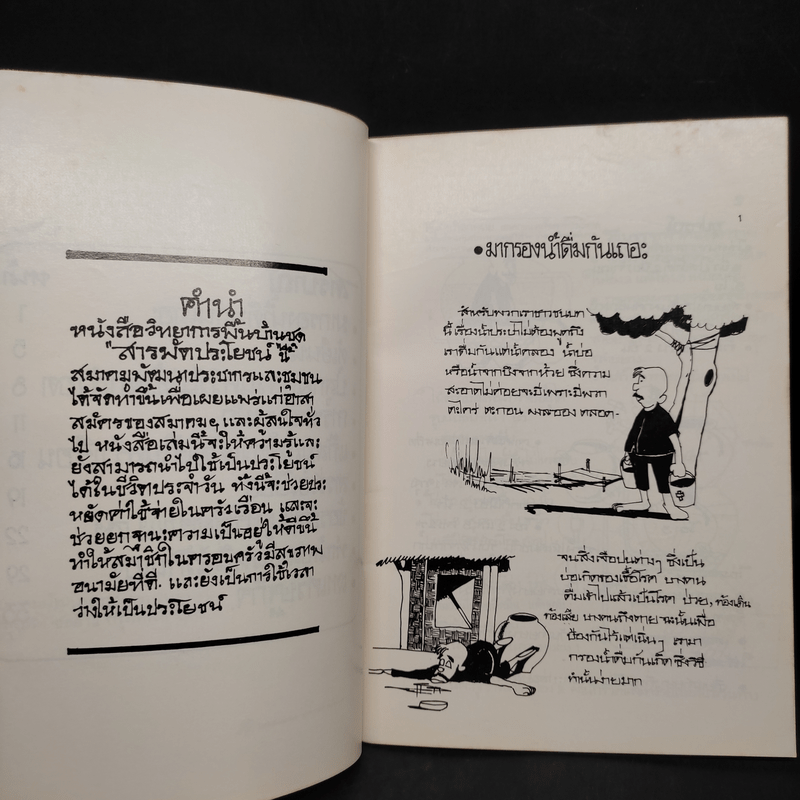 คำนำ
หนังสือวิทยาการพื้นบ้านชุด
"สารพัดประโยชน์" นี้
สมาคมพัฒนาประชากรและชุมชน
ได้จัดทำขึ้นเพื่อเผยแพร่แก่อาสา
สมัครของสมาคมฯ และผู้สนใจทั่ว
ไป หนังสือเล่มนี้จะให้ความรู้และ
ยังสามารถนำไปใช้เป็นประโยชน์
ได้ในชีวิตประจำวัน ทั้งนี้จะช่วยประ
หยัดค่าใช้จ่ายในครัวเรือน และจะ
ช่วยยกฐานะความเป็นอยู่ให้ดีขึ้น
ทำให้สมาชิกในครอบครัวมีสุขภาพ
อนามัยที่ดี. และยังเป็นการใช้เวลา
ว่างให้เป็นประโยชน์
1
• มากรองน้ำดื่มกันเถอะ
สำหรับพวกเราชาวชนบท
นี้เรื่องน้ำประปาไม่ต้องพูดถึง
เราดื่มกันแต่น้ำคลอง น้ำบ่อ
หรือน้ำจากบึงจากห้วย ซึ่งความ
สะอาดไม่ค่อยจะมีเพราะมีพวก
ตะไคร่ ตะกอน ละออง ตลอด-
จนสิ่งเจือปนต่างๆ ซึ่งเป็น
บ่อเกิดของเชื้อโรค บางคน
ดื่มเข้าไปแล้วเป็นโรค ป่วย, ท้องเดิน
ท้องเสีย บางคนถึงตาย ฉะนั้นเพื่อ
ป้องกันไว้แต่เนิ่นๆ เรามา
กรองน้ำดื่มกันเถิด ซึ่งวิธี
ทำนั้นง่ายมาก